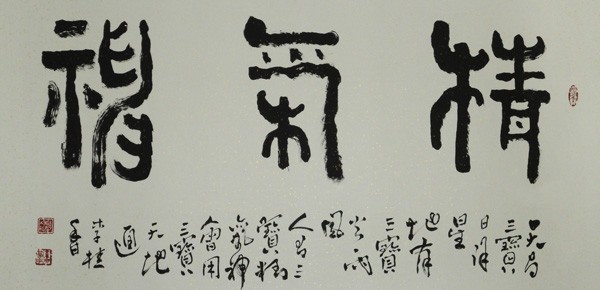 精氣神
天有
三寶
日月
星
地有
三寶
風
人有三
寶精
氣神
會用
三寶
天地
通
李桂